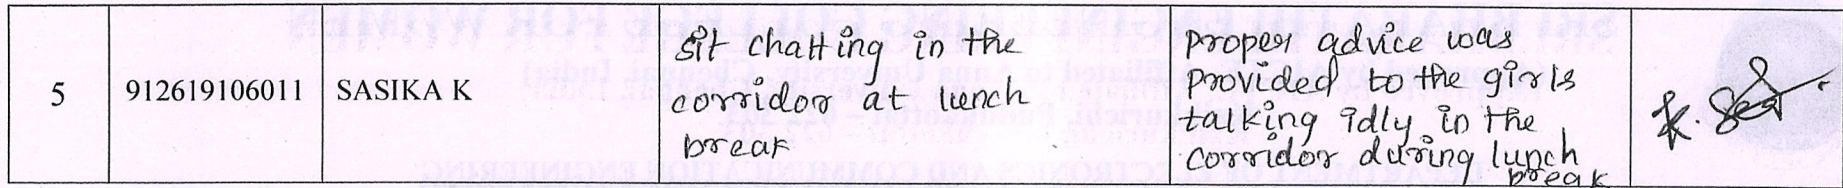 5
912619106011
SASIKA K
sit chatting in the
corridor at lunch
break
proper advice was
provided to the girls
talking idly in the
corridor during lunch
break